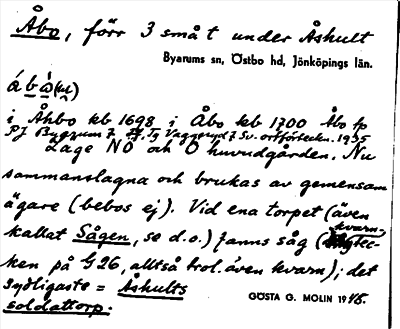 Åbo, förr 3 små t under Åshult
Byarums sn, Östbo hd, Jönköpings län.
i Åhbo kb 1698 i Åbo kb 1700 Åbo fp
PJ Byarum 7 Ty Vaggeryd 7 Sv. ortförteckn. 1935
Läge NO och O huvudgården. Nu
sammanslagna och brukas av gemensam
ägare (bebos ej). Vid ena torpet (även
kvarn,
kallat Sågen, se d.o.) fanns såg (
ken på G26, alltså trol. även kvarn); det
sydligaste = Åshults
soldattorp.
GÖSTA G. MOLIN 1948.